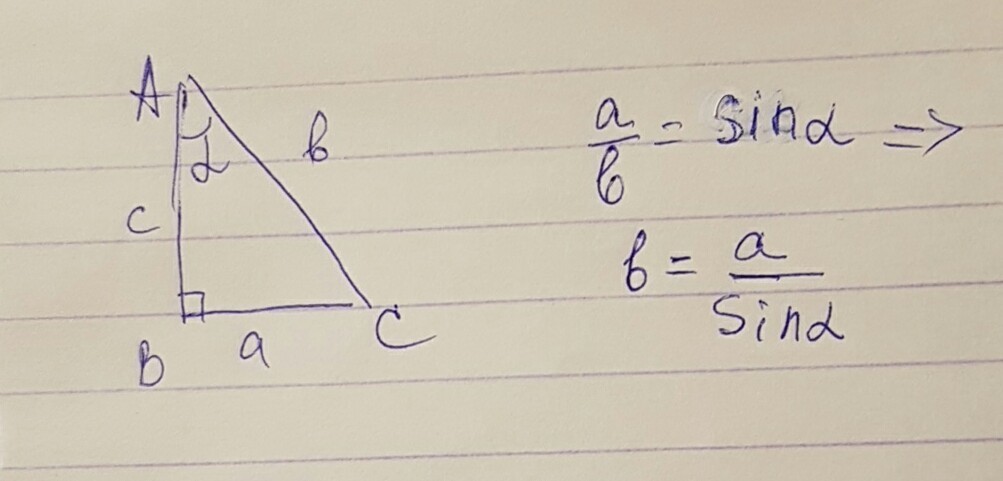 A
α
b
c
B
a
C
a/b = sinα =>
b = a/sinα